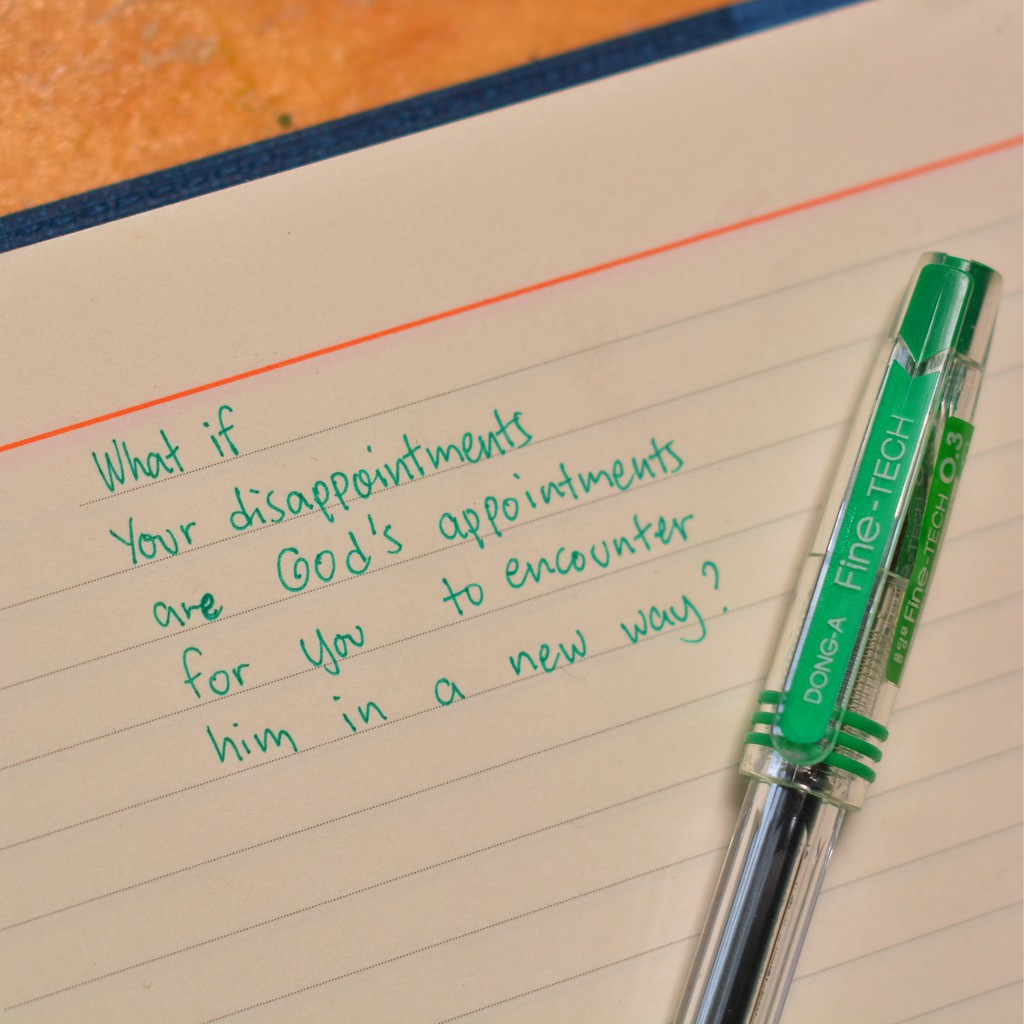 What if
Your disappointments
are God's appointments
for you to encounter
him in a new way?
DONG-A Fine-TECH
Fine-TECH 0.3